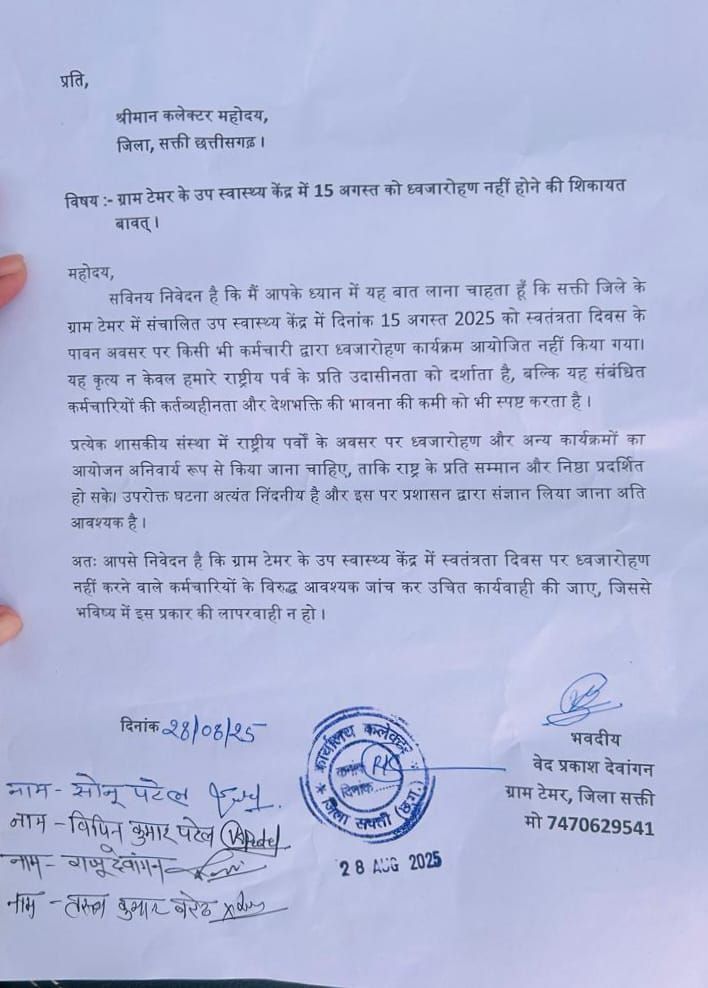 प्रति,
श्रीमान कलेक्टर महोदय,
जिला, सक्ती छत्तीसगढ़।
विषय :- ग्राम टेमर के उप स्वास्थ्य केंद्र में 15 अगस्त को ध्वजारोहण नहीं होने की शिकायत
बावत्।
महोदय,
सविनय निवेदन है कि मैं आपके ध्यान में यह बात लाना चाहता हूँ कि सक्ती जिले के
ग्राम टेमर में संचालित उप स्वास्थ्य केंद्र में दिनांक 15 अगस्त 2025 को स्वतंत्रता दिवस के
पावन अवसर पर किसी भी कर्मचारी द्वारा ध्वजारोहण कार्यक्रम आयोजित नहीं किया गया।
यह कृत्य न केवल हमारे राष्ट्रीय पर्व के प्रति उदासीनता को दर्शाता है, बल्कि यह संबंधित
कर्मचारियों की कर्तव्यहीनता और देशभक्ति की भावना की कमी को भी स्पष्ट करता है।
प्रत्येक शासकीय संस्था में राष्ट्रीय पर्वों के अवसर पर ध्वजारोहण और अन्य कार्यक्रमों का
आयोजन अनिवार्य रूप से किया जाना चाहिए, ताकि राष्ट्र के प्रति सम्मान और निष्ठा प्रदर्शित
हो सके। उपरोक्त घटना अत्यंत निंदनीय है और इस पर प्रशासन द्वारा संज्ञान लिया जाना अति
आवश्यक है।
अतः आपसे निवेदन है कि ग्राम टेमर के उप स्वास्थ्य केंद्र में स्वतंत्रता दिवस पर ध्वजारोहण
नहीं करने वाले कर्मचारियों के विरुद्ध आवश्यक जांच कर उचित कार्यवाही की जाए, जिससे
भविष्य में इस प्रकार की लापरवाही न हो।
दिनांक 28/08/25
भवदीय
वेद प्रकाश देवांगन
ग्राम टेमर, जिला सक्ती
मो 7470629541
कार्यालय कलेक्टर
क्रमांक
दिनांक.....
जिला सक्ती (छ.ग.)
28 AUG 2025
नाम - सोनू पटेल
नाम - विपिन कुमार पटेल
नाम - राजू देवांगन
नाम - कुमार